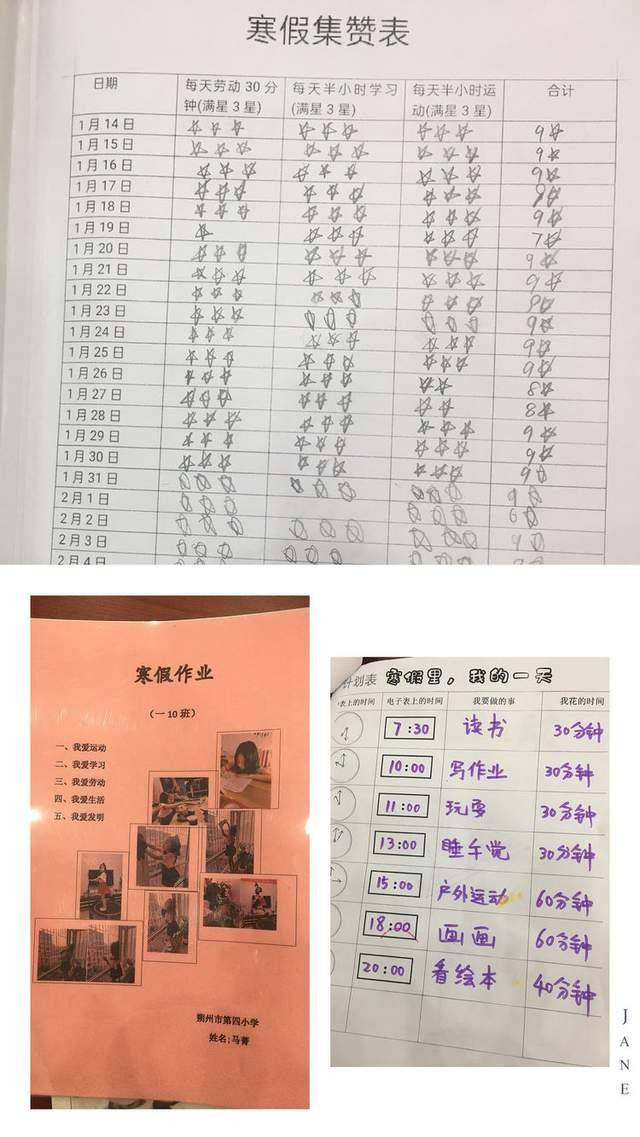 寒假集赞表
日期 每天劳动30分钟(满星3星) 每天半小时学习(满星3星) 每天半小时运动(满星3星) 合计
1月14日 ☆☆☆ ☆☆☆ ☆☆☆ 9☆
1月15日 ☆☆☆ ☆☆☆ ☆☆☆ 9☆
1月16日 ☆☆☆ ☆☆☆ ☆☆☆ 9☆
1月17日 ☆☆☆ ☆☆☆ ☆☆☆
1月18日 ☆☆☆ ☆☆☆ ☆☆☆ 9☆
1月19日 ☆ ☆☆☆ ☆☆☆ 7☆
1月20日 ☆☆☆ ☆☆☆ ☆☆☆ 9☆
1月21日 ☆☆☆ ☆☆☆ ☆☆☆ 9☆
1月22日
1月23日
1月24日
1月25日
1月26日
1月27日
1月28日
1月29日
1月30日
1月31日
2月1日
2月2日
2月3日
2月4日
寒假作业
(一10班)
一、我爱运动
二、我爱学习
三、我爱劳动
四、我爱生活
五、我爱发明
朔州市第四小学
姓名:马菁
计划表 寒假里，我的一天
表上的时间 电子表上的时间 我要做的事 我花的时间
7:30 读书 30分钟
10:00 写作业 30分钟
11:00 玩耍 30分钟
13:00 睡午觉 30分钟
15:00 户外运动 60分钟
18:00 画画 60分钟
20:00 看绘本 40分钟
JANE